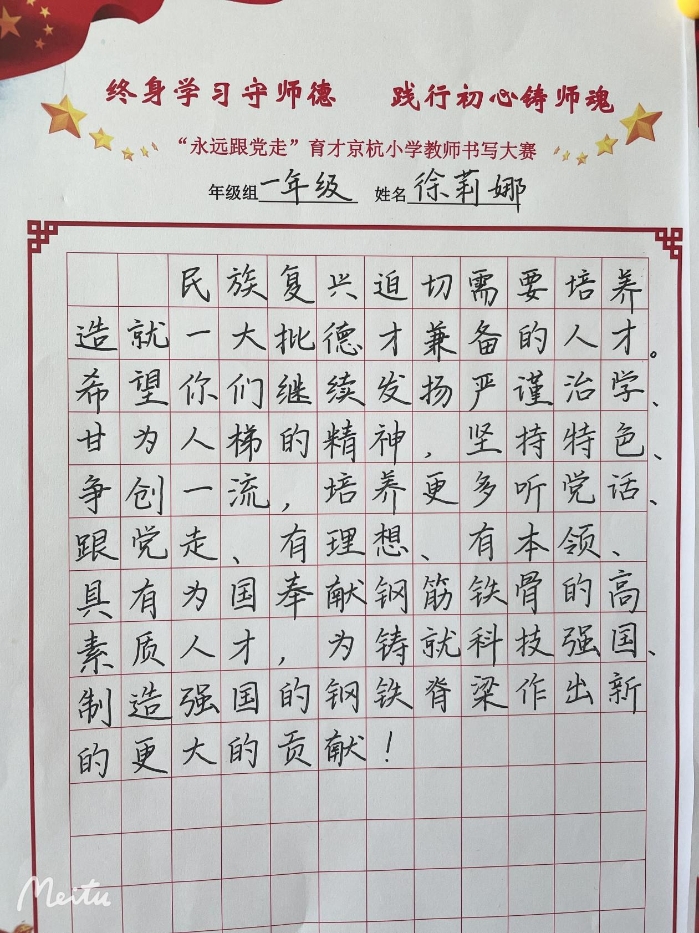 终身学习守师德 践行初心铸师魂
“永远跟党走”育才京杭小学教师书写大赛
年级组一年级 姓名徐莉娜
民族复兴迫切需要培养
造就一大批德才兼备的人才。
希望你们继续发扬严谨治学、
甘为人梯的精神，坚持特色、
争创一流，培养更多听党话、
跟党走、有理想、有本领、
具有为国奉献钢筋铁骨的高
素质人才，为铸就科技强国、
制造强国的钢铁脊梁作出新
的更大的贡献！
Meitu